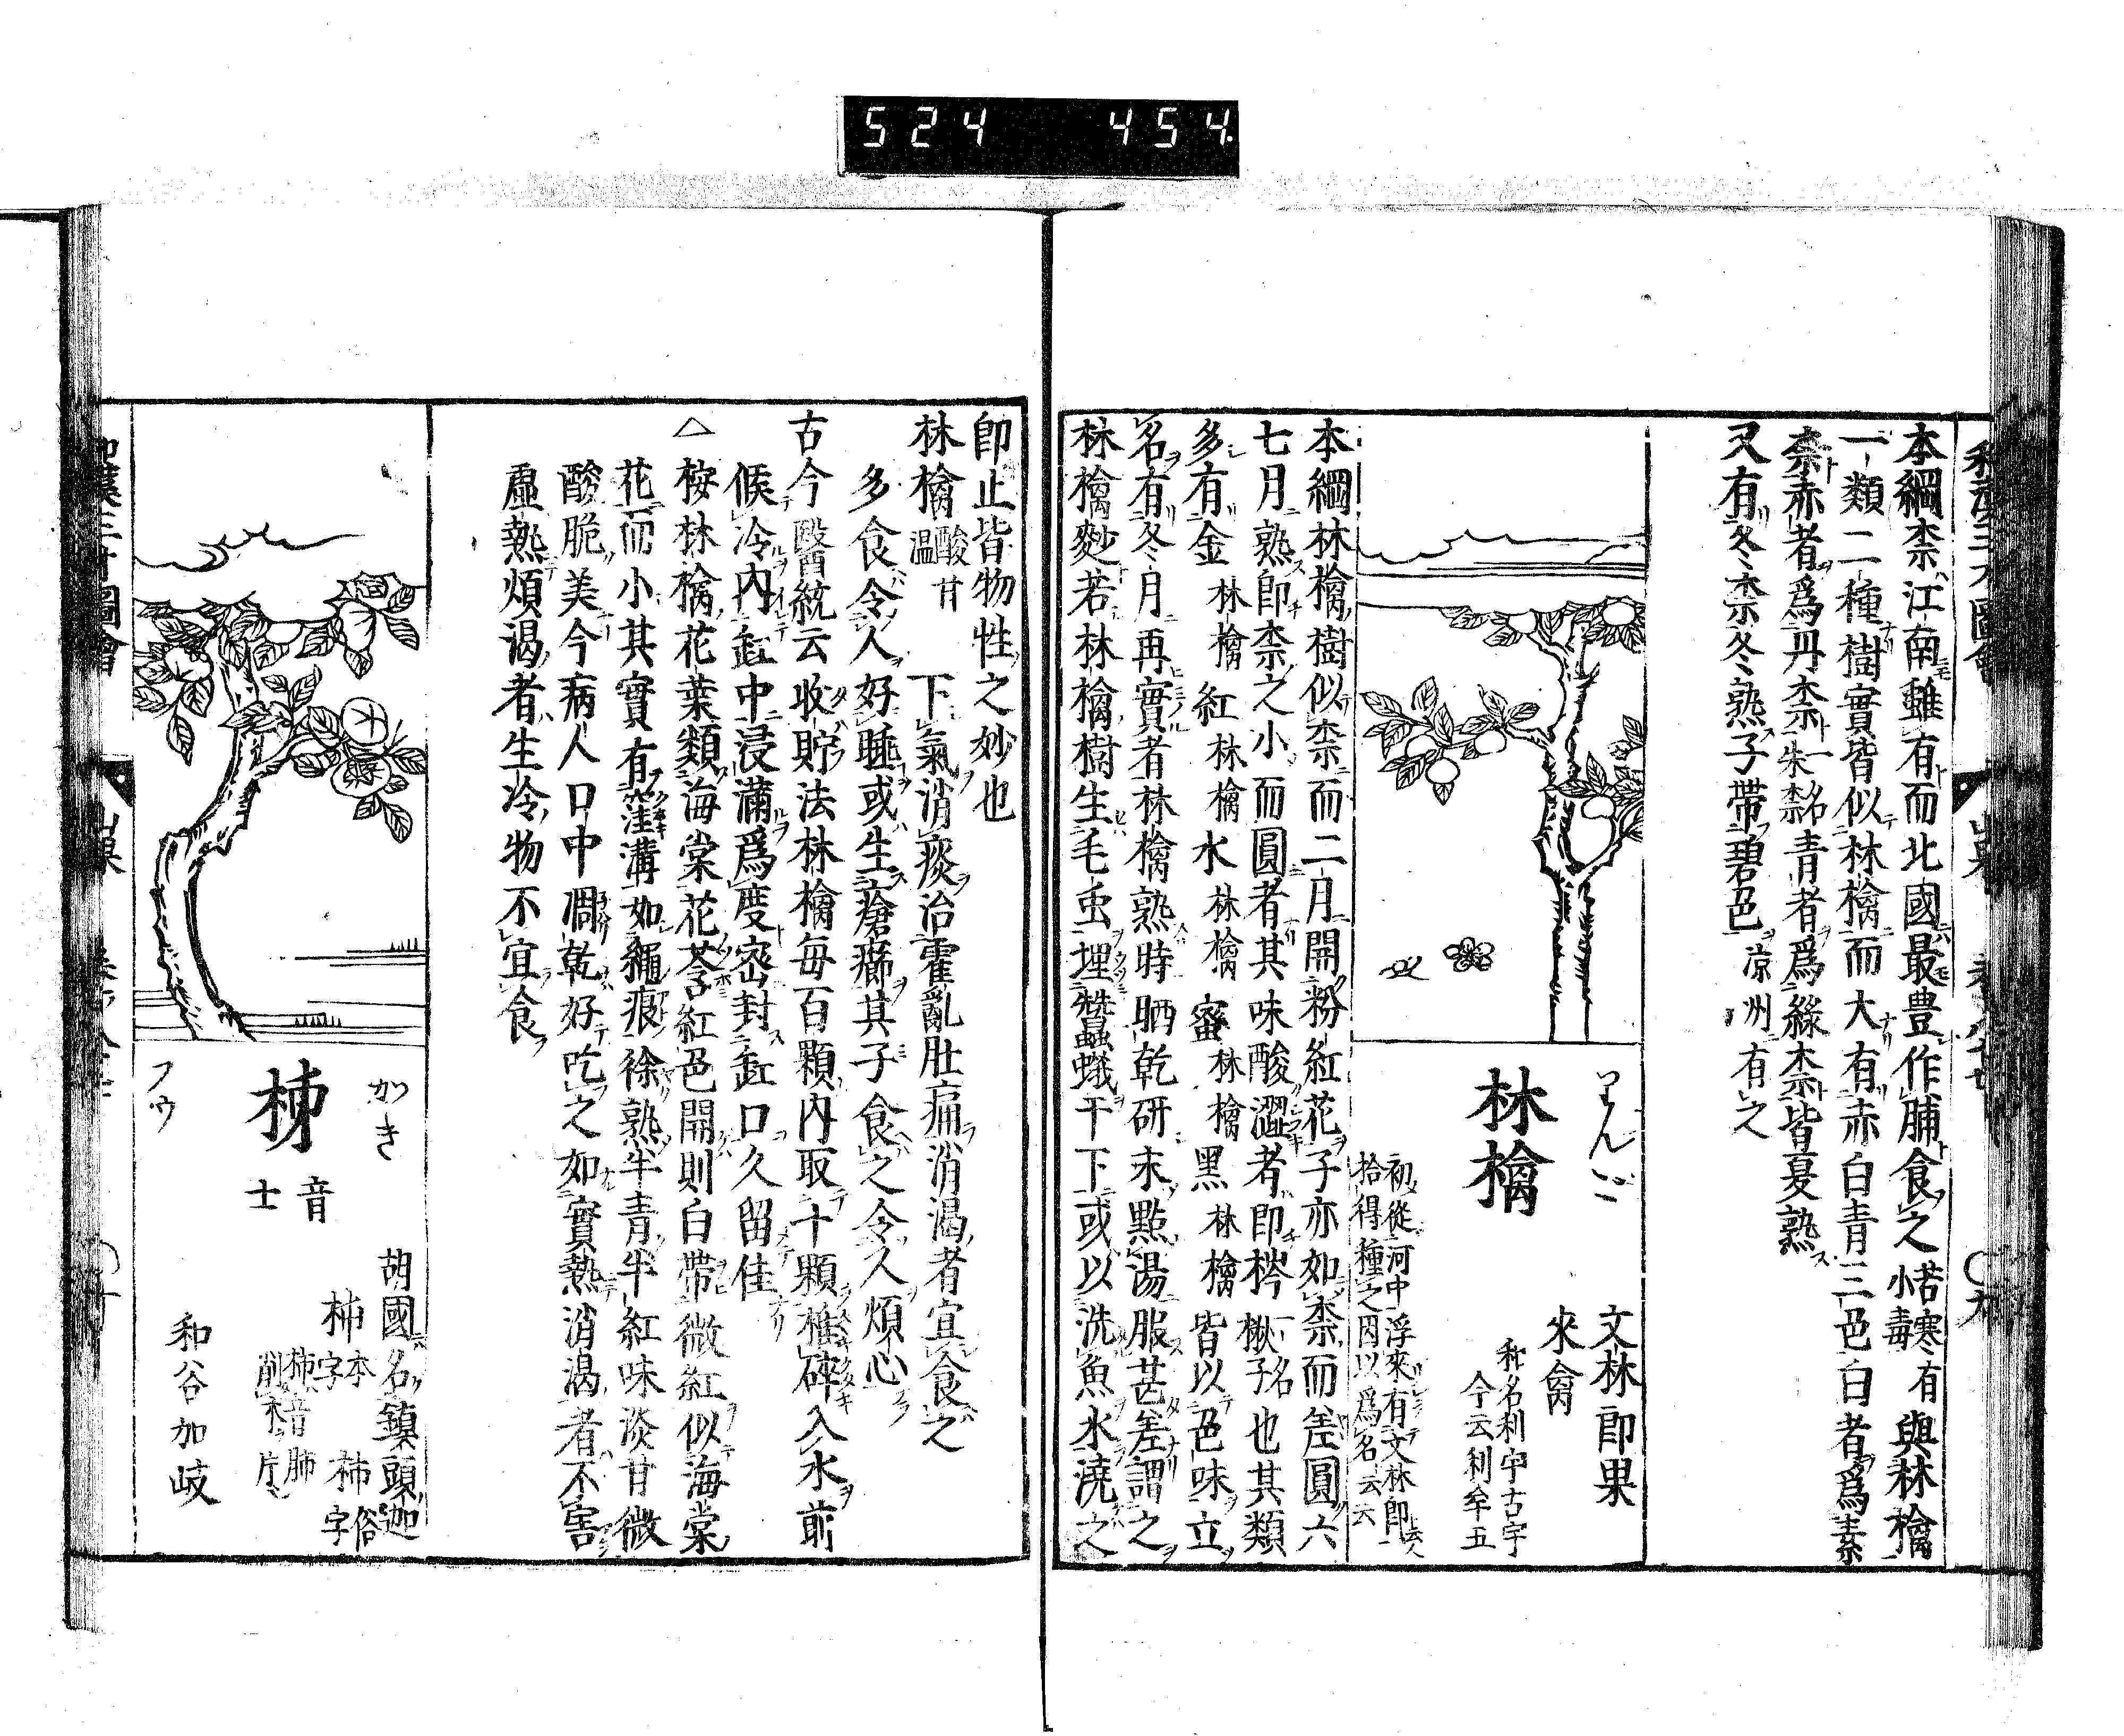 524 454
本綱柰江南雖有而北國最豊作脯食之苦寒有小毒與林檎
一類二種樹實皆似林檎而大有赤白青三色白者爲素
柰赤者爲丹柰一名朱柰青者爲緑柰皆夏熟
又有冬柰冬熟子帶碧色凉州有之
りんご
林檎
文林郎果
來禽
和名利宇古宇
今云利牟五
初從河中浮來有文林郎
拾得種之因以爲名云云
本綱林檎樹似柰而二月開粉紅花子亦如柰而差圓六
七月熟即柰之小而圓者其味酸澀者即梣一名楸子也其類
多有金林檎紅林檎水林檎蜜林檎黑林檎皆以色味立
名有冬月再實者林檎熟時晒乾研末點湯服甚差謂之
林檎麨若林檎樹生毛虫埋蠶蛾于下或以洗魚水澆之
即止皆物性之妙也
林檎酸甘温 下氣消痰治霍亂肚痛消渴者宜食之
多食令人好睡或生瘡癤其子食之令人煩心
古今醫統云收貯法林檎毎百顆内取十顆槌碎入水煎
候冷内缸中浸滿爲度密封缸口久留佳
△桉林檎花葉類海棠花荅紅色開則白帶微紅似海棠
花而小其實有窪溝如繩痕徐熟半青半紅味淡甘微
酸脆美今病人口中凋乾好吃之如實熱消渴者不害
虚熱煩渴者生冷物不宜食
かき
柹
フウ
音士
胡國名鎮頭迦
柿本字
柿俗字
柹音肺
削木片
和名加岐